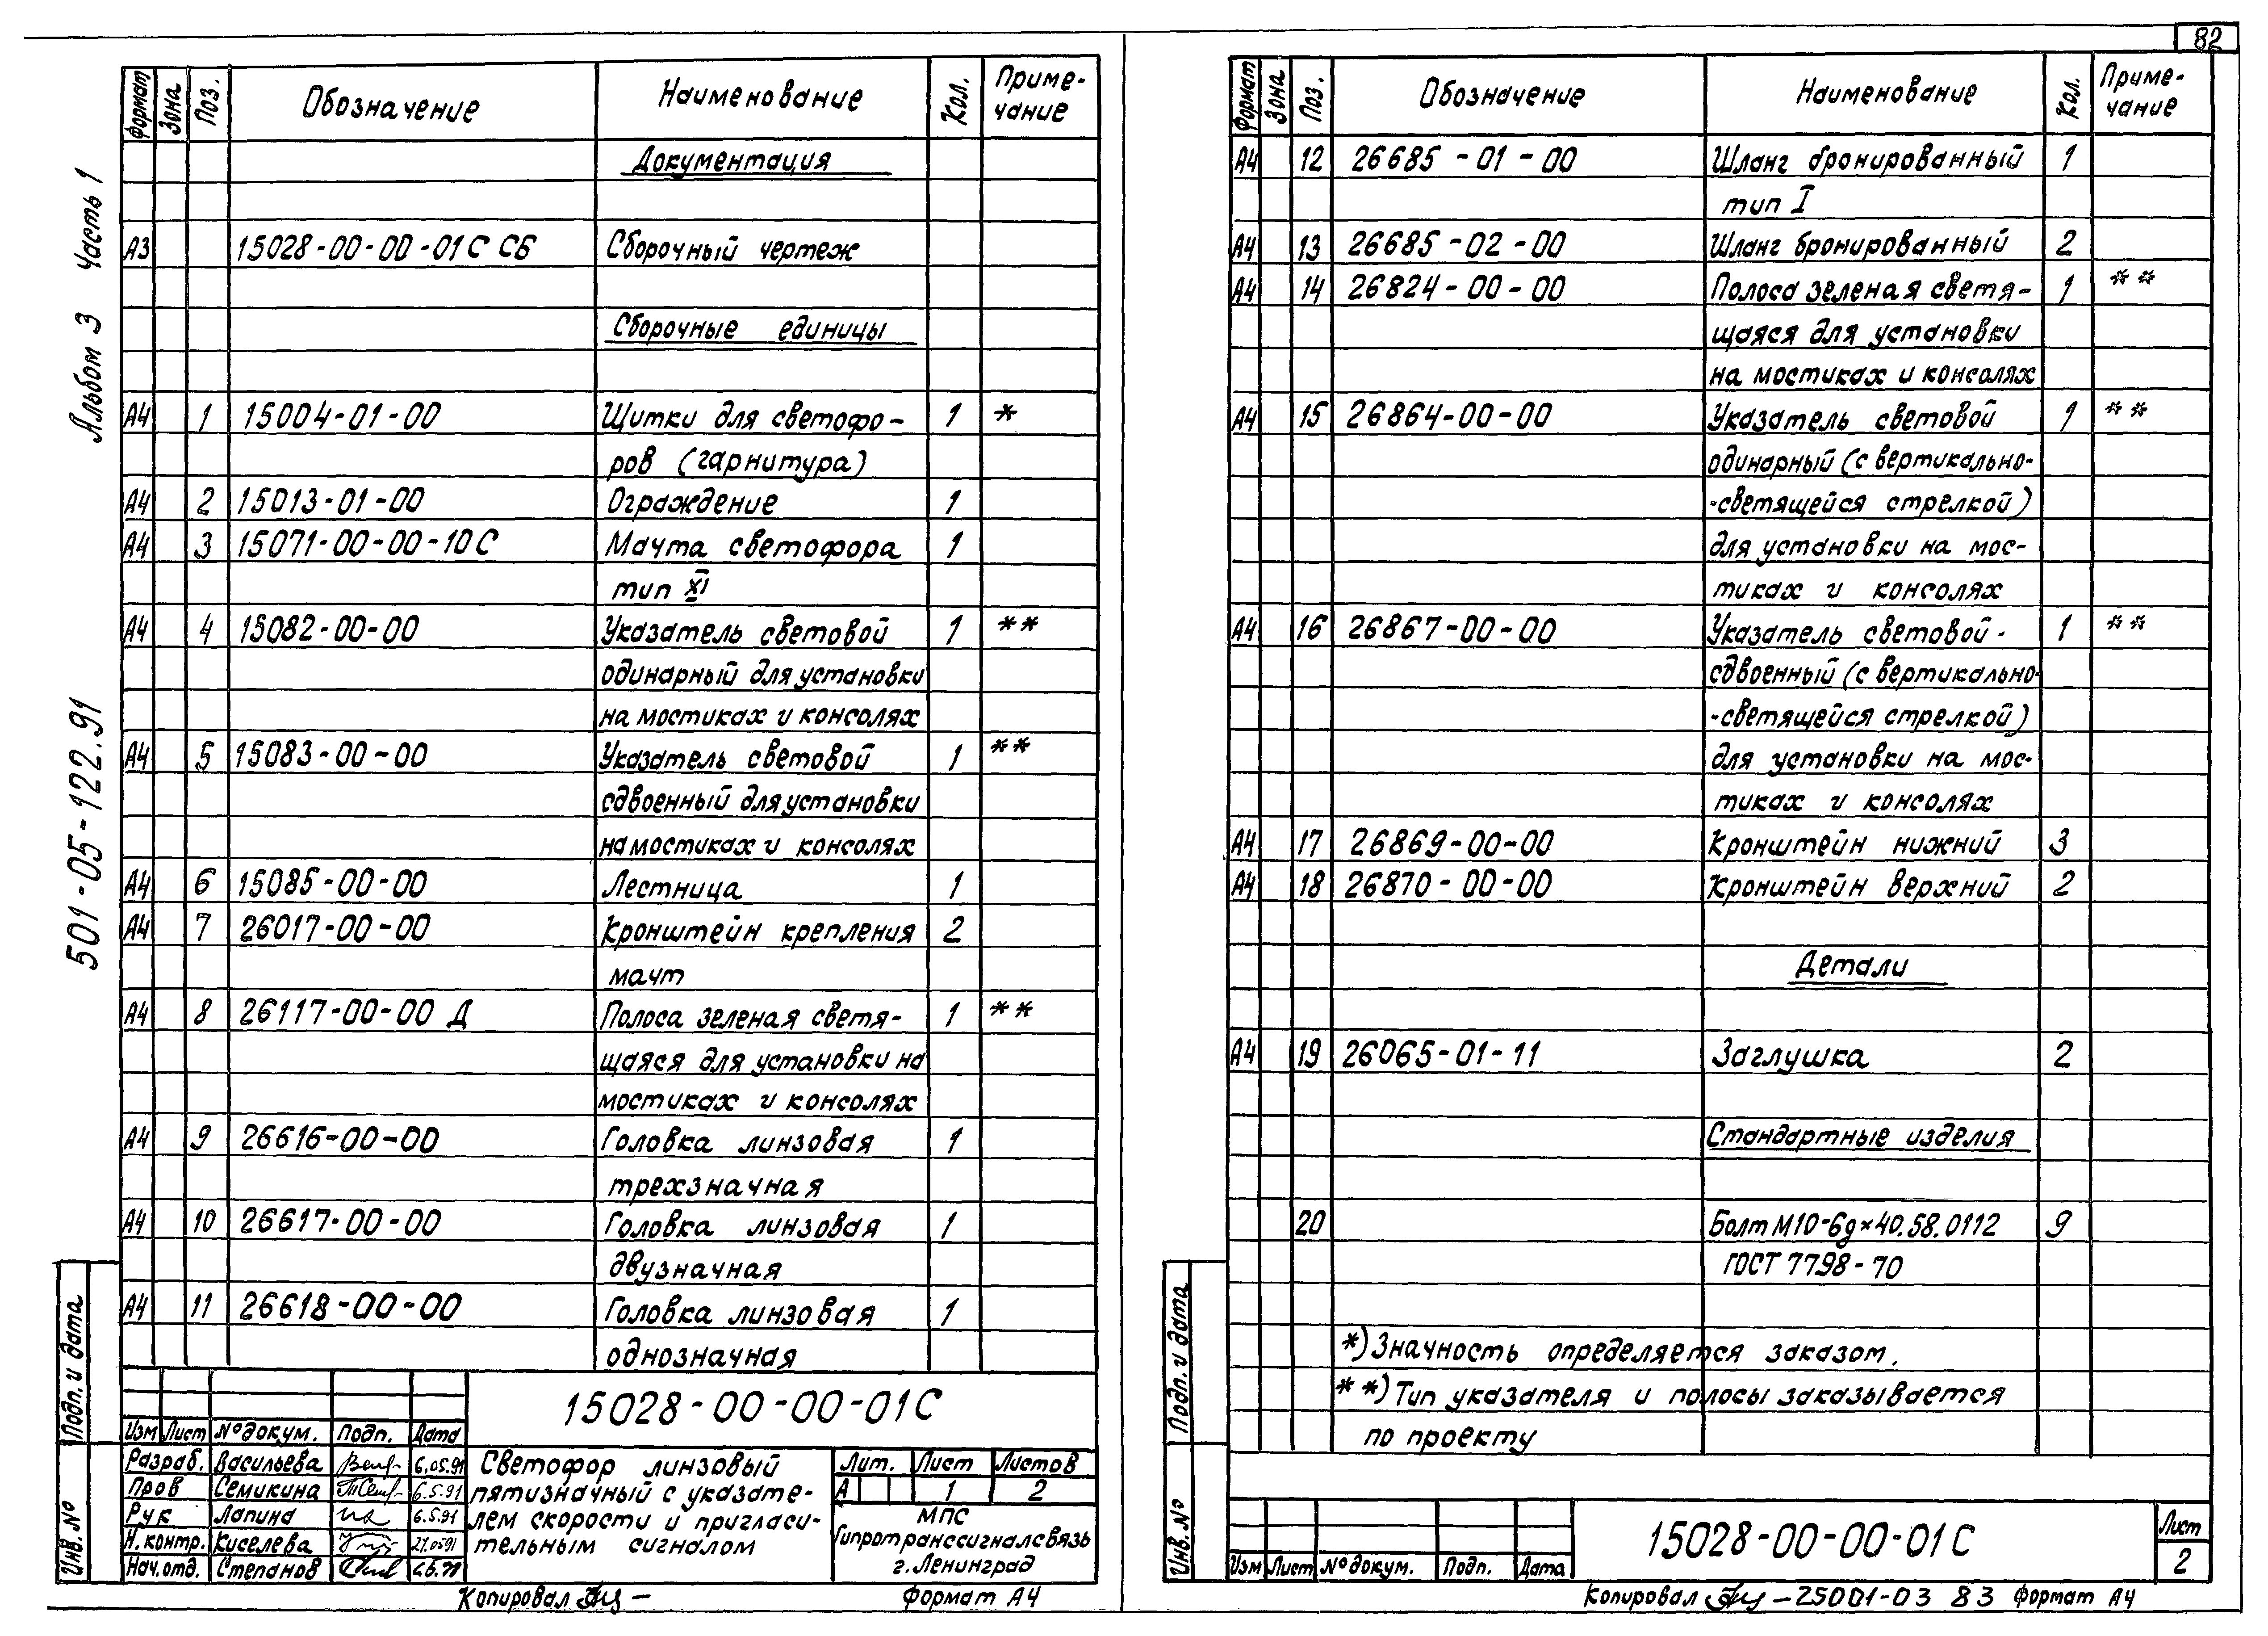 82
Альбом 3 Часть 1
501-05-122.91
Формат Зона Поз. Обозначение Наименование Кол. Приме-
чание
Документация
А3 15028-00-00-01С СБ Сборочный чертеж
Сборочные единицы
А4 1 15004-01-00 Щитки для светофо- 1 *
ров (гарнитура)
А4 2 15013-01-00 Ограждение 1
А4 3 15071-00-00-10С Мачта светофора 1
тип XI
А4 4 15082-00-00 Указатель световой 1 **
одинарный для установки
на мостиках и консолях
А4 5 15083-00-00 Указатель световой 1 **
сдвоенный для установки
на мостиках и консолях
А4 6 15085-00-00 Лестница 1
А4 7 26017-00-00 Кронштейн крепления 2
мачт
А4 8 26117-00-00 Д Полоса зеленая светя- 1 **
щаяся для установки на
мостиках и консолях
А4 9 26616-00-00 Головка линзовая 1
трехзначная
А4 10 26617-00-00 Головка линзовая 1
двузначная
А4 11 26618-00-00 Головка линзовая 1
однозначная
Подп. и дата
Инв. №
15028-00-00-01С
Изм Лист № докум. Подп. Дата
Разраб. Васильева 6.05.91
Пров Семикина 6.5.91
Рук Лапина 6.5.91
Н.контр. Киселева
Нач.отд. Степанов
Светофор линзовый
пятизначный с указате-
лем скорости и пригласи-
тельным сигналом
Лит. Лист Листов
А 1 2
МПС
Гипротранссигналсвязь
г. Ленинград
Копировал Формат А4
Формат Зона Поз. Обозначение Наименование Кол. Приме-
чание
А4 12 26685-01-00 Шланг бронированный 1
тип I
А4 13 26685-02-00 Шланг бронированный 2
А4 14 26824-00-00 Полоса зеленая светя- 1 **
щаяся для установки
на мостиках и консолях
А4 15 26864-00-00 Указатель световой 1 **
одинарный (с вертикально-
-светящейся стрелкой)
для установки на мос-
тиках и консолях
А4 16 26867-00-00 Указатель световой 1 **
сдвоенный (с вертикально-
-светящейся стрелкой)
для установки на мос-
тиках и консолях
А4 17 26869-00-00 Кронштейн нижний 3
А4 18 26870-00-00 Кронштейн верхний 2
Детали
А4 19 26065-01-11 Заглушка 2
Стандартные изделия
20 Болт М10-6g×40.58.0112 9
ГОСТ 7798-70
*) Значность определяется заказом.
**) Тип указателя и полосы заказывается
по проекту
Подп. и дата
Инв. №
Изм Лист № докум. Подп. Дата
15028-00-00-01С
Лист
2
Копировал -25001-03 83 Формат А4